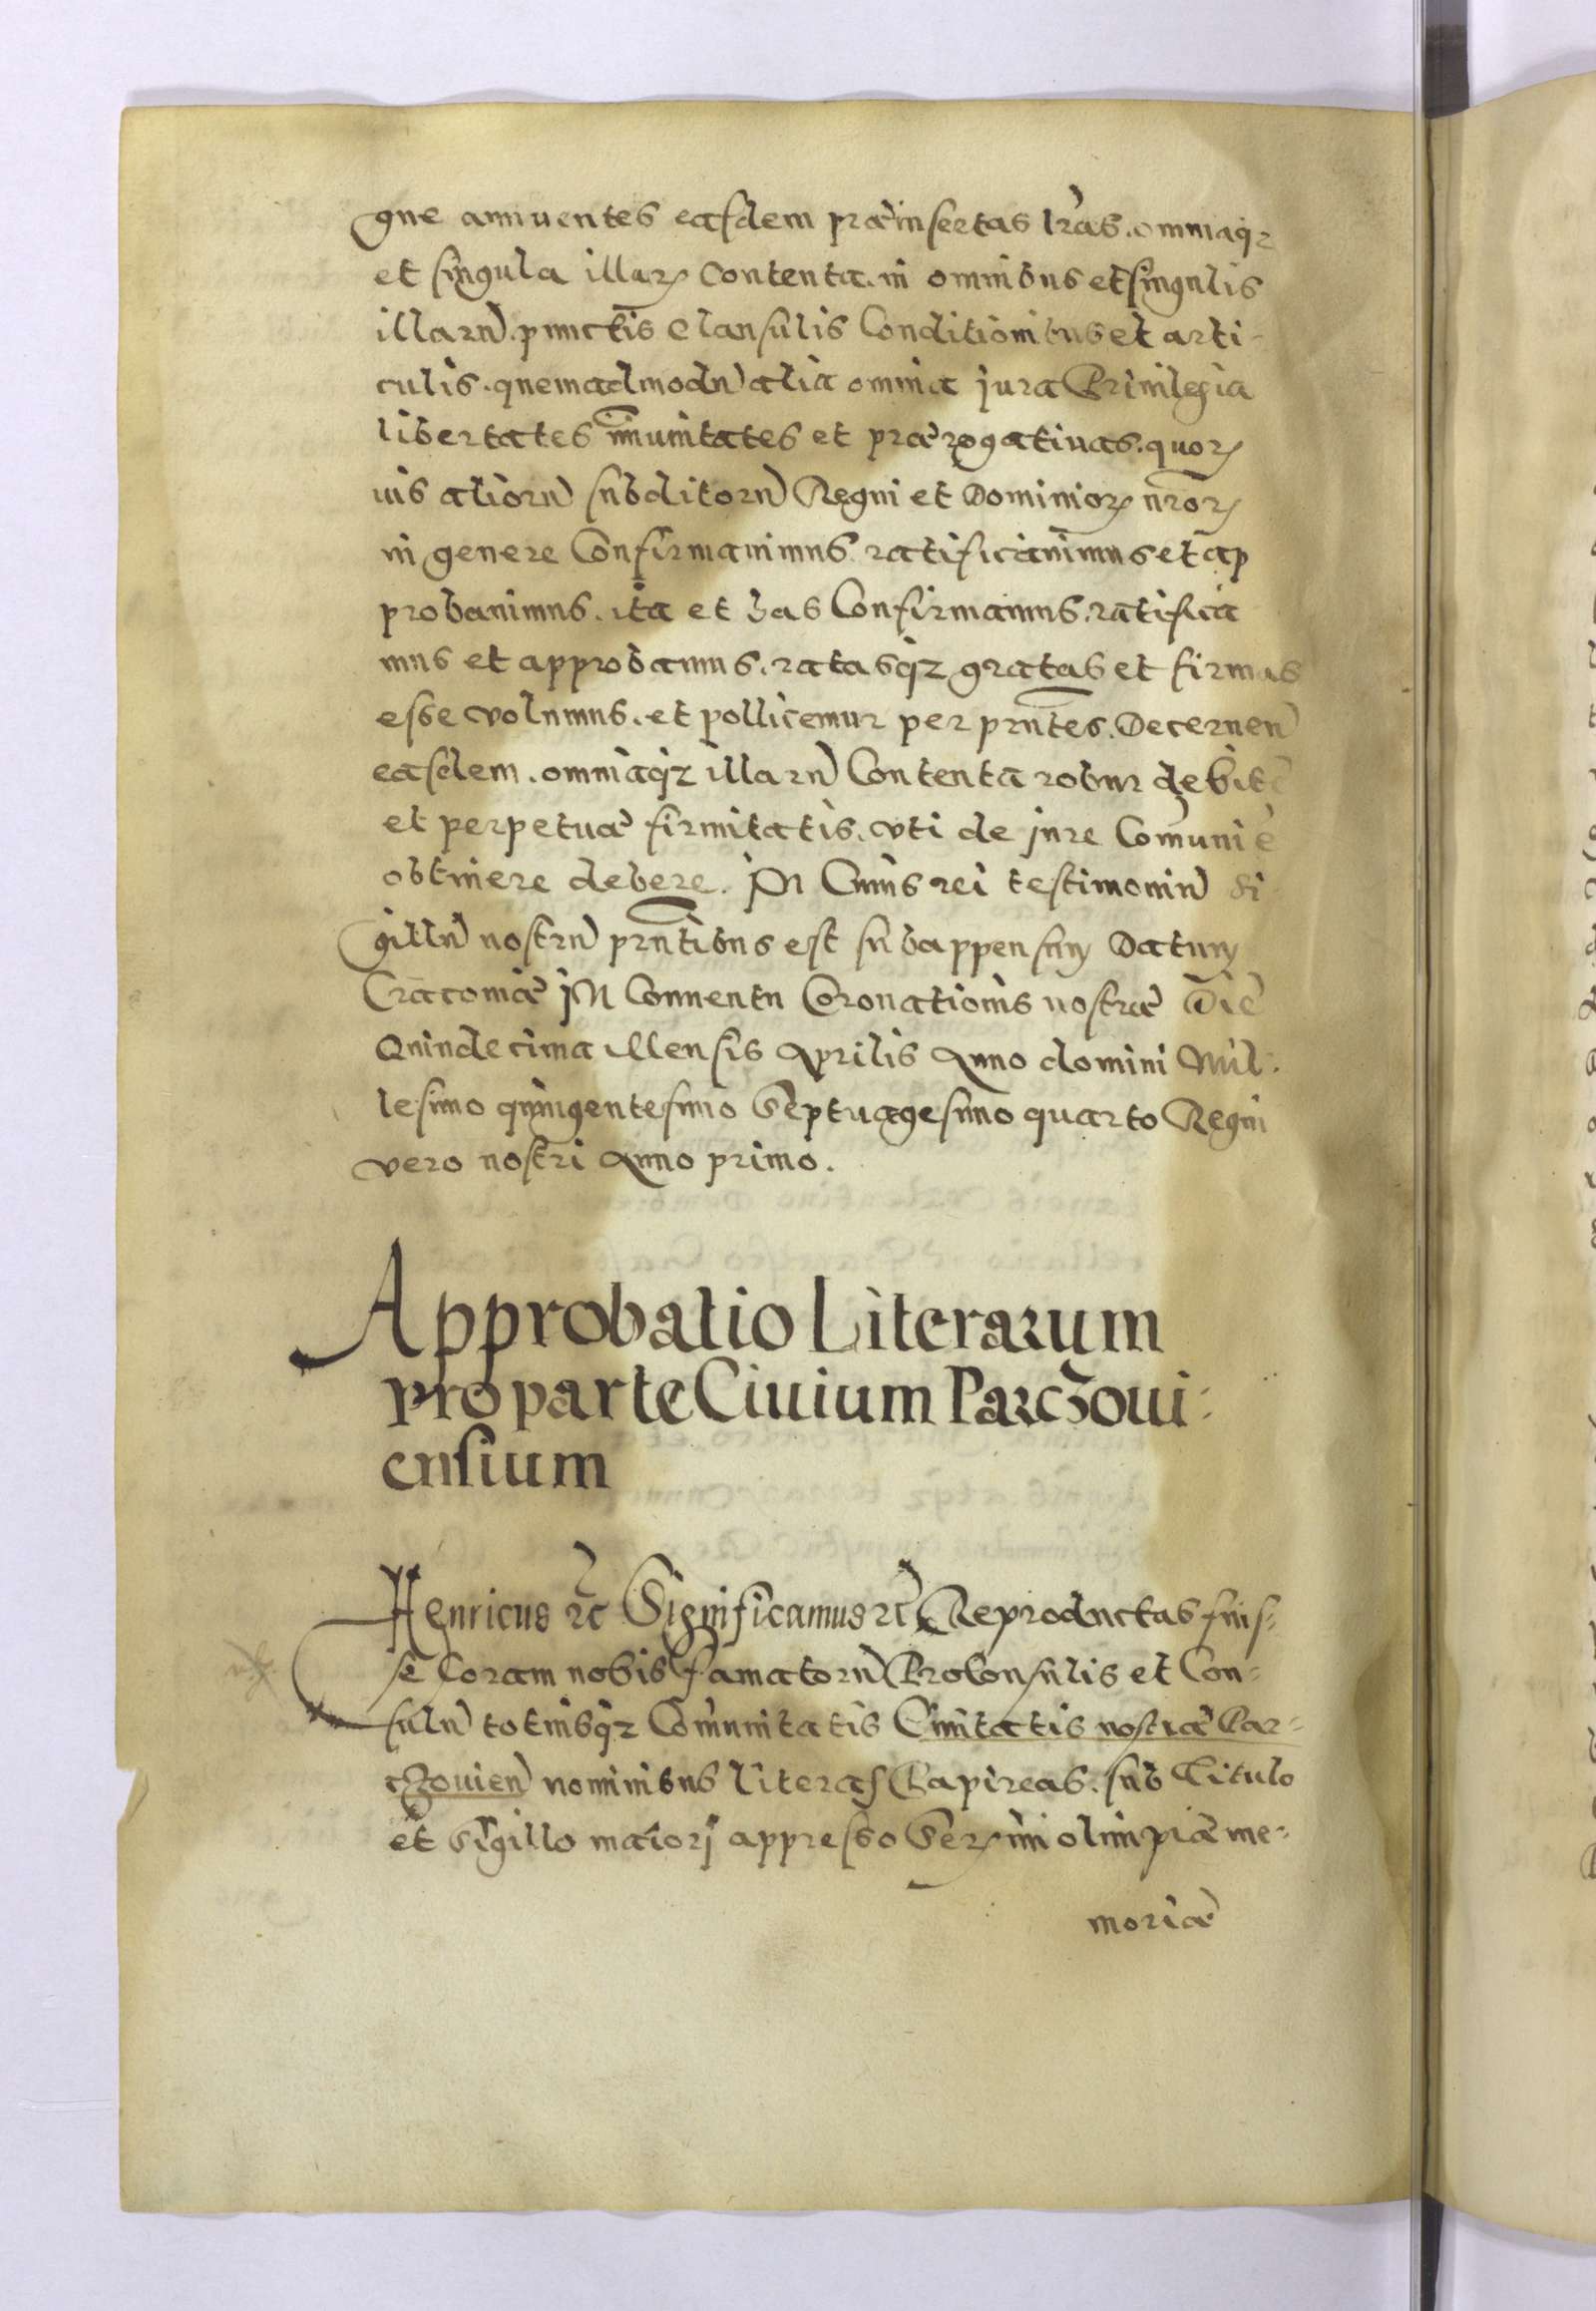 gne annuentes easdem præinsertas lr̃as. omniaqz
et singula illaꝝ Contenta. in omnibus et singulis
illarũ. punctis Clausulis Conditionibus et arti-
culis. quemadmodũ alia omnia jura Priuilegia
libertates im̃unitates et prærogatiuas. quoꝝ
uis aliorũ subditorũ Regni et Dominioꝝ nr̃oꝝ
in genere Confirmauimus ratificauimus et ap
probauimus. ita et has Confirmamus. ratifica
mus et approbamus. ratasqz gratas et firmas
esse volumus. et pollicemur per prñtes. Decernen̄
easdem. omniaqz illarũ Contenta robur debitæ
et perpetuæ firmitatis. vti de jure Com̃uni ē
obtinere debere. IN Cuius rei testimoniũ Si
gillũ nostrũ prñtibus est subappensum Datum
Cracouiæ IN Conuentu Coronationis nostræ Die
Quindecima Mensis Aprilis Anno domini Mil-
lesimo quingentesimo Septuagesimo quarto Regni
vero nostri Anno primo.
Approbatio Literarum
pro parte Ciuium Parczoui-
ensium
Henricus ꝛc̃ Significamus ꝛc̃ Reproductas fuis-
se Coram nobis famatorũ Proconsulis et Con-
sulũ totiusqz Com̃unitatis Ciuitatis nostræ Par-
czouien̄ nominibus literas Papireas. sub Titulo
et Sigillo maiorj appresso Sereꝝmi olim piæ me-
moriæ